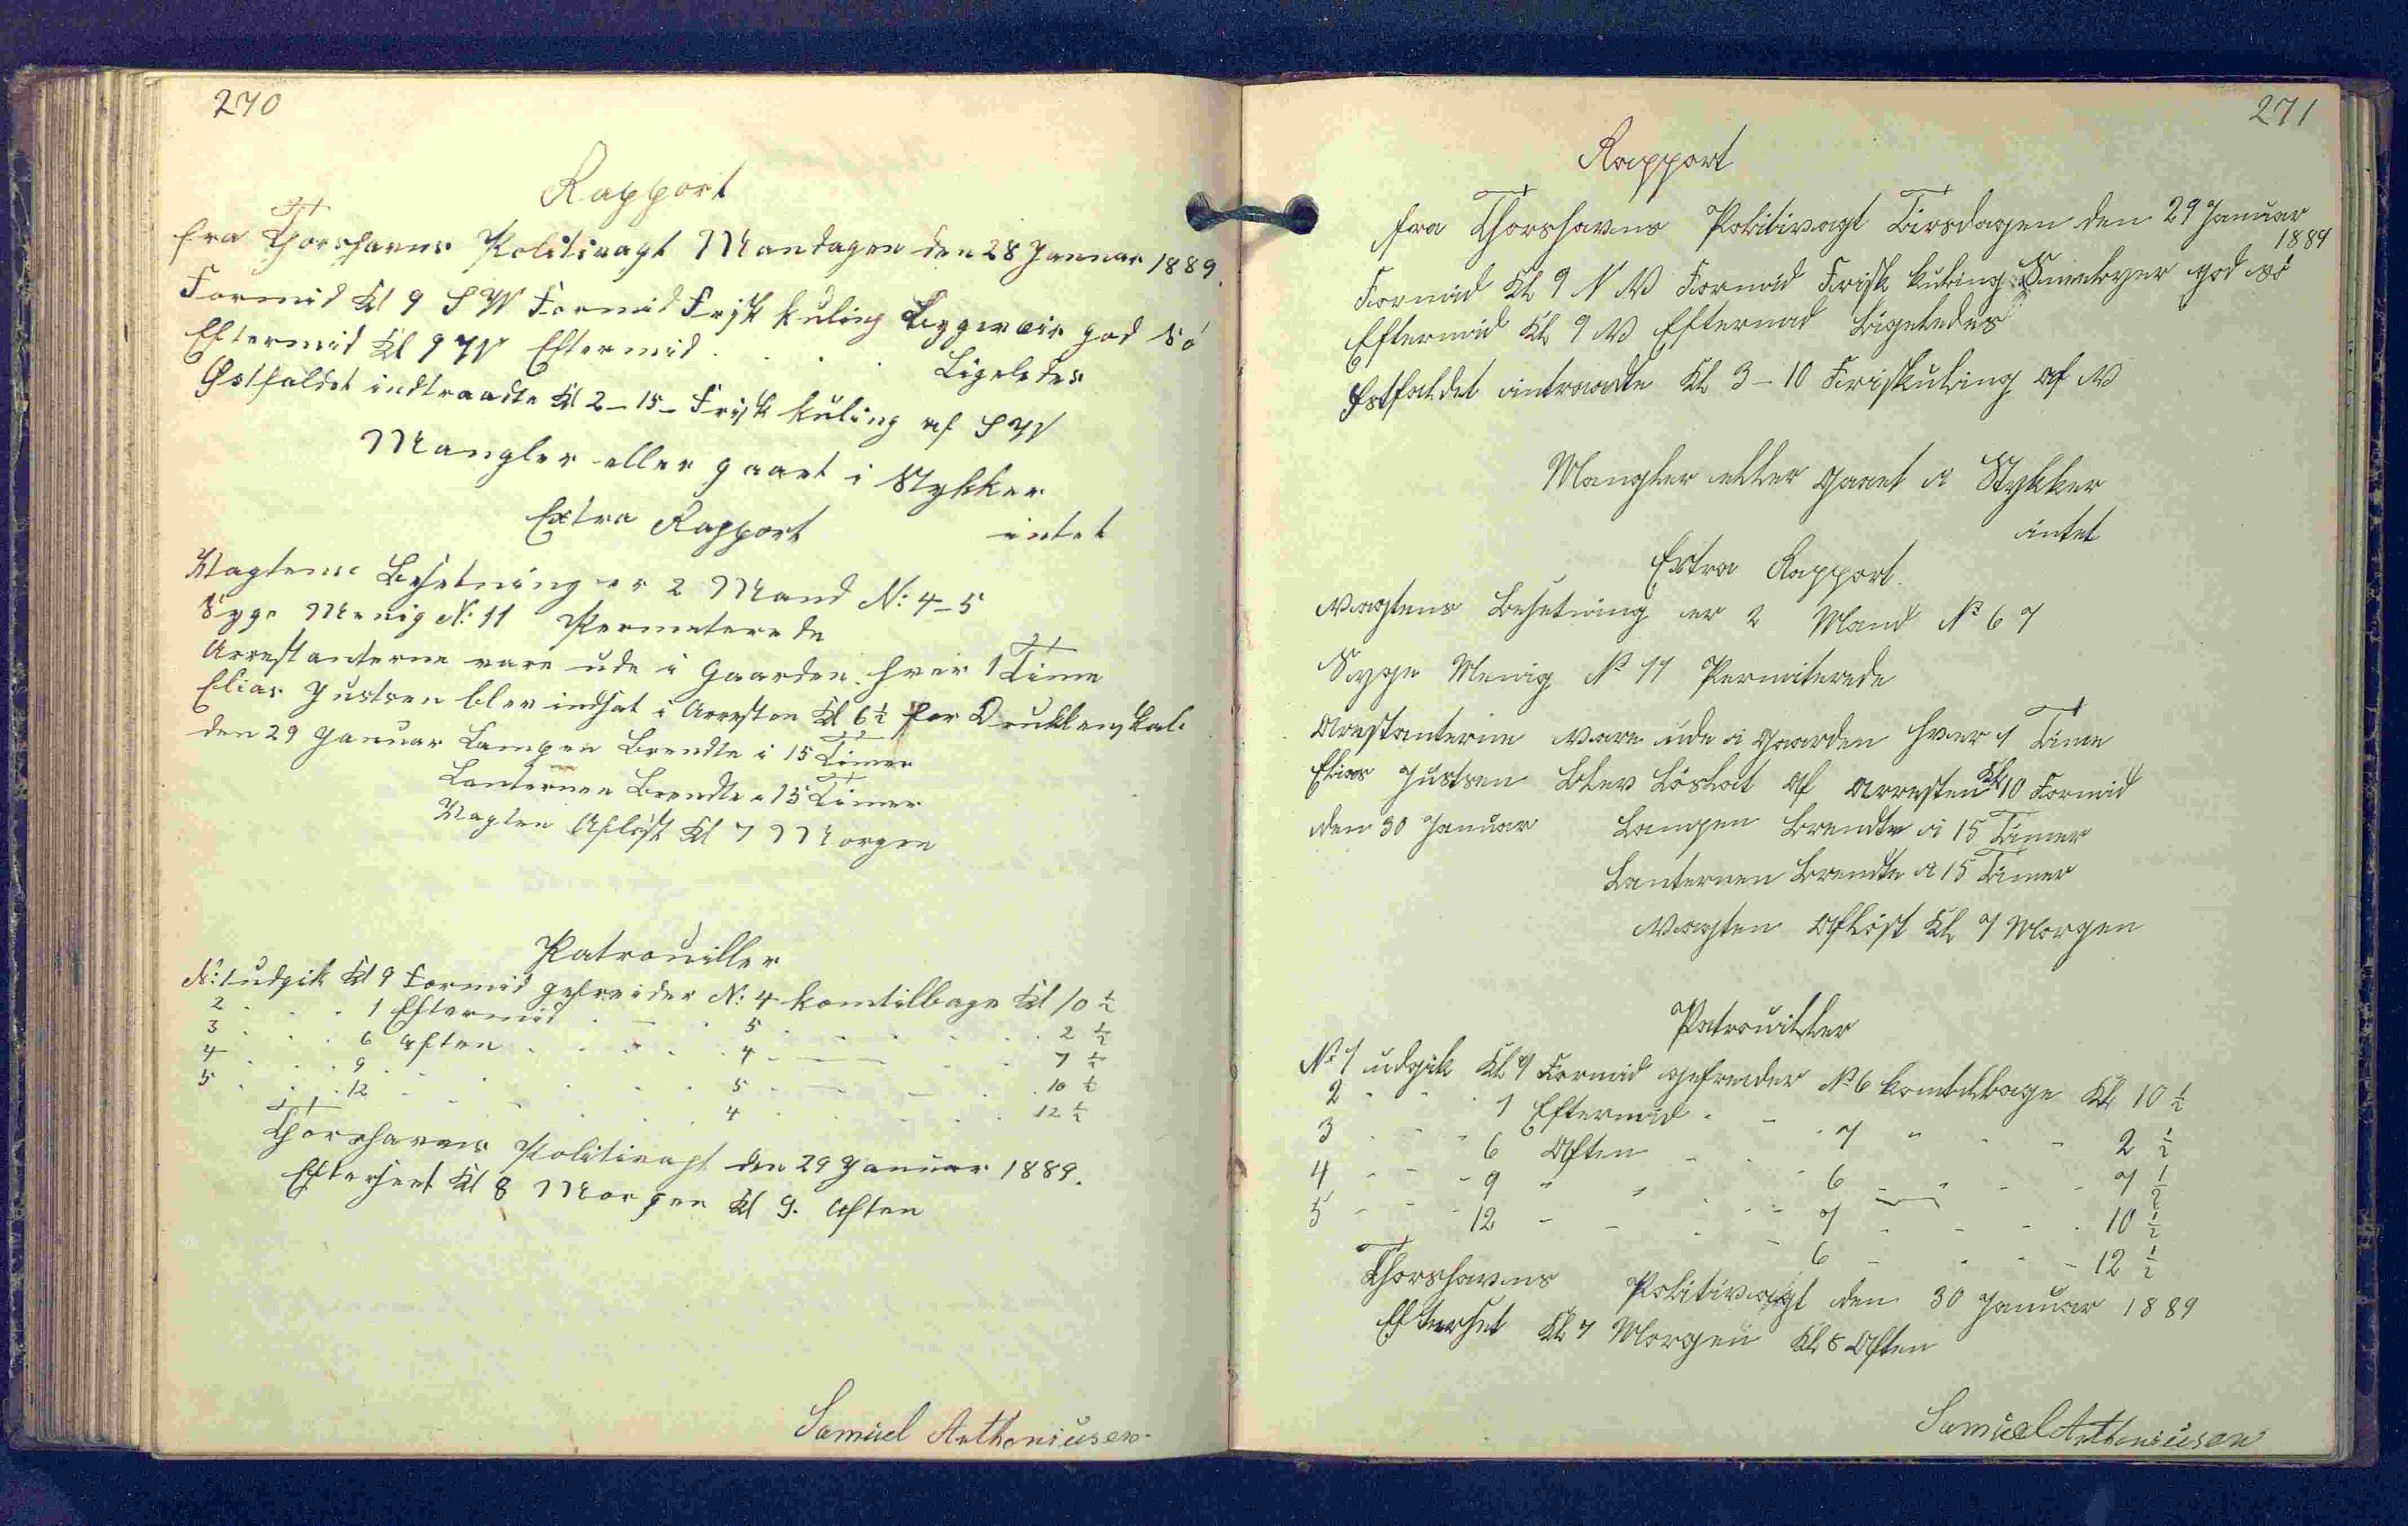 270
Rapport
fra Thorshavns Politivagt Mandagen den 28 Januar 1889.
Formid Kl 9 S W Formid Frisk kuling Bygeveir god Sö
Eftermid Kl 9 W Eftermid . . . . Ligeledes
Østfaldet indtraadte Kl 2-15- Frisk kuling af S W
Mangler eller gaaet i Stykker
intet
Extra Rapport
Vagtens Besetning er 2 Mand N: 4-5
Syge Menig N: 11 Permeterede
Arrestanterne vare ude i Gaarden hver 1 Time
Elias Justsen blev indsat i Arresten Kl 6½ for Drukkenskab
den 29 Januar Lampen Brendte i 15 Timer
Lanternen Brendte i 15 Timer
Vagten Aflöst Kl 7 Morgen
Patrouiller
N: 1 udgik Kl 9 Formid gefreider N: 4 kom tilbage Kl 10 ½
2 . . . 1 Eftermid . - . 5 . . . . . 2 ½
3 . . . 6 Aften . . . . 4 . - . . . 7 ½
4 . . . 9 . . . . . 5 . - . . . 10 ½
5 . . . 12 . . . . . 4 . . . . . 12 ½
Thorshavns Politivagt den 29 Januar 1889.
Efterseet Kl 8 Morgen Kl 9. Aften
Samuel Anthoniusen.
271
Rapport
fra Thorshavns Politivagt Tirsdagen den 29 Januar
1889
Formid Kl 9 N W Formid Frisk kuling Sneebyer god sö
Eftermid Kl 9 W Eftermid Ligeledes
Østfaldet intraadte Kl 3-10 Friskuling af W
Mangler eller gaaet i Stykker
intet
Extra Rapport.
Vagtens Besetning er 2 Mand No 6 7
Syge Menig No 11 Permiterede
Arestanterne vare ude i Gaarden hver 1 Time
Elias Justsen blev Löslat af Arresten Kl 10 Formid
den 30 Januar Lampen Brendte i 15 Timer
Lanternen Brendte i 15 Timer
Vagten Aflöst Kl 7 Morgen
Patrouiller
No 1 udgik Kl 9 Formid gefreider No 6 kom tilbage Kl 10 ½
2 . . . 1 Eftermid . - . 7 " . - 2 ½
3 . . - 6 Aften - . . 6 - " - - 7 ½
4 - - - 9 " " . - - 7 . . - . 10 ½
5 - - - 12 - - . - 6 - . - - 12 ½
Thorshavns Politivagt den 30 Januar 1889
Efterset Kl 7 Morgen Kl 8 Aften
Samuel Anthoniusen